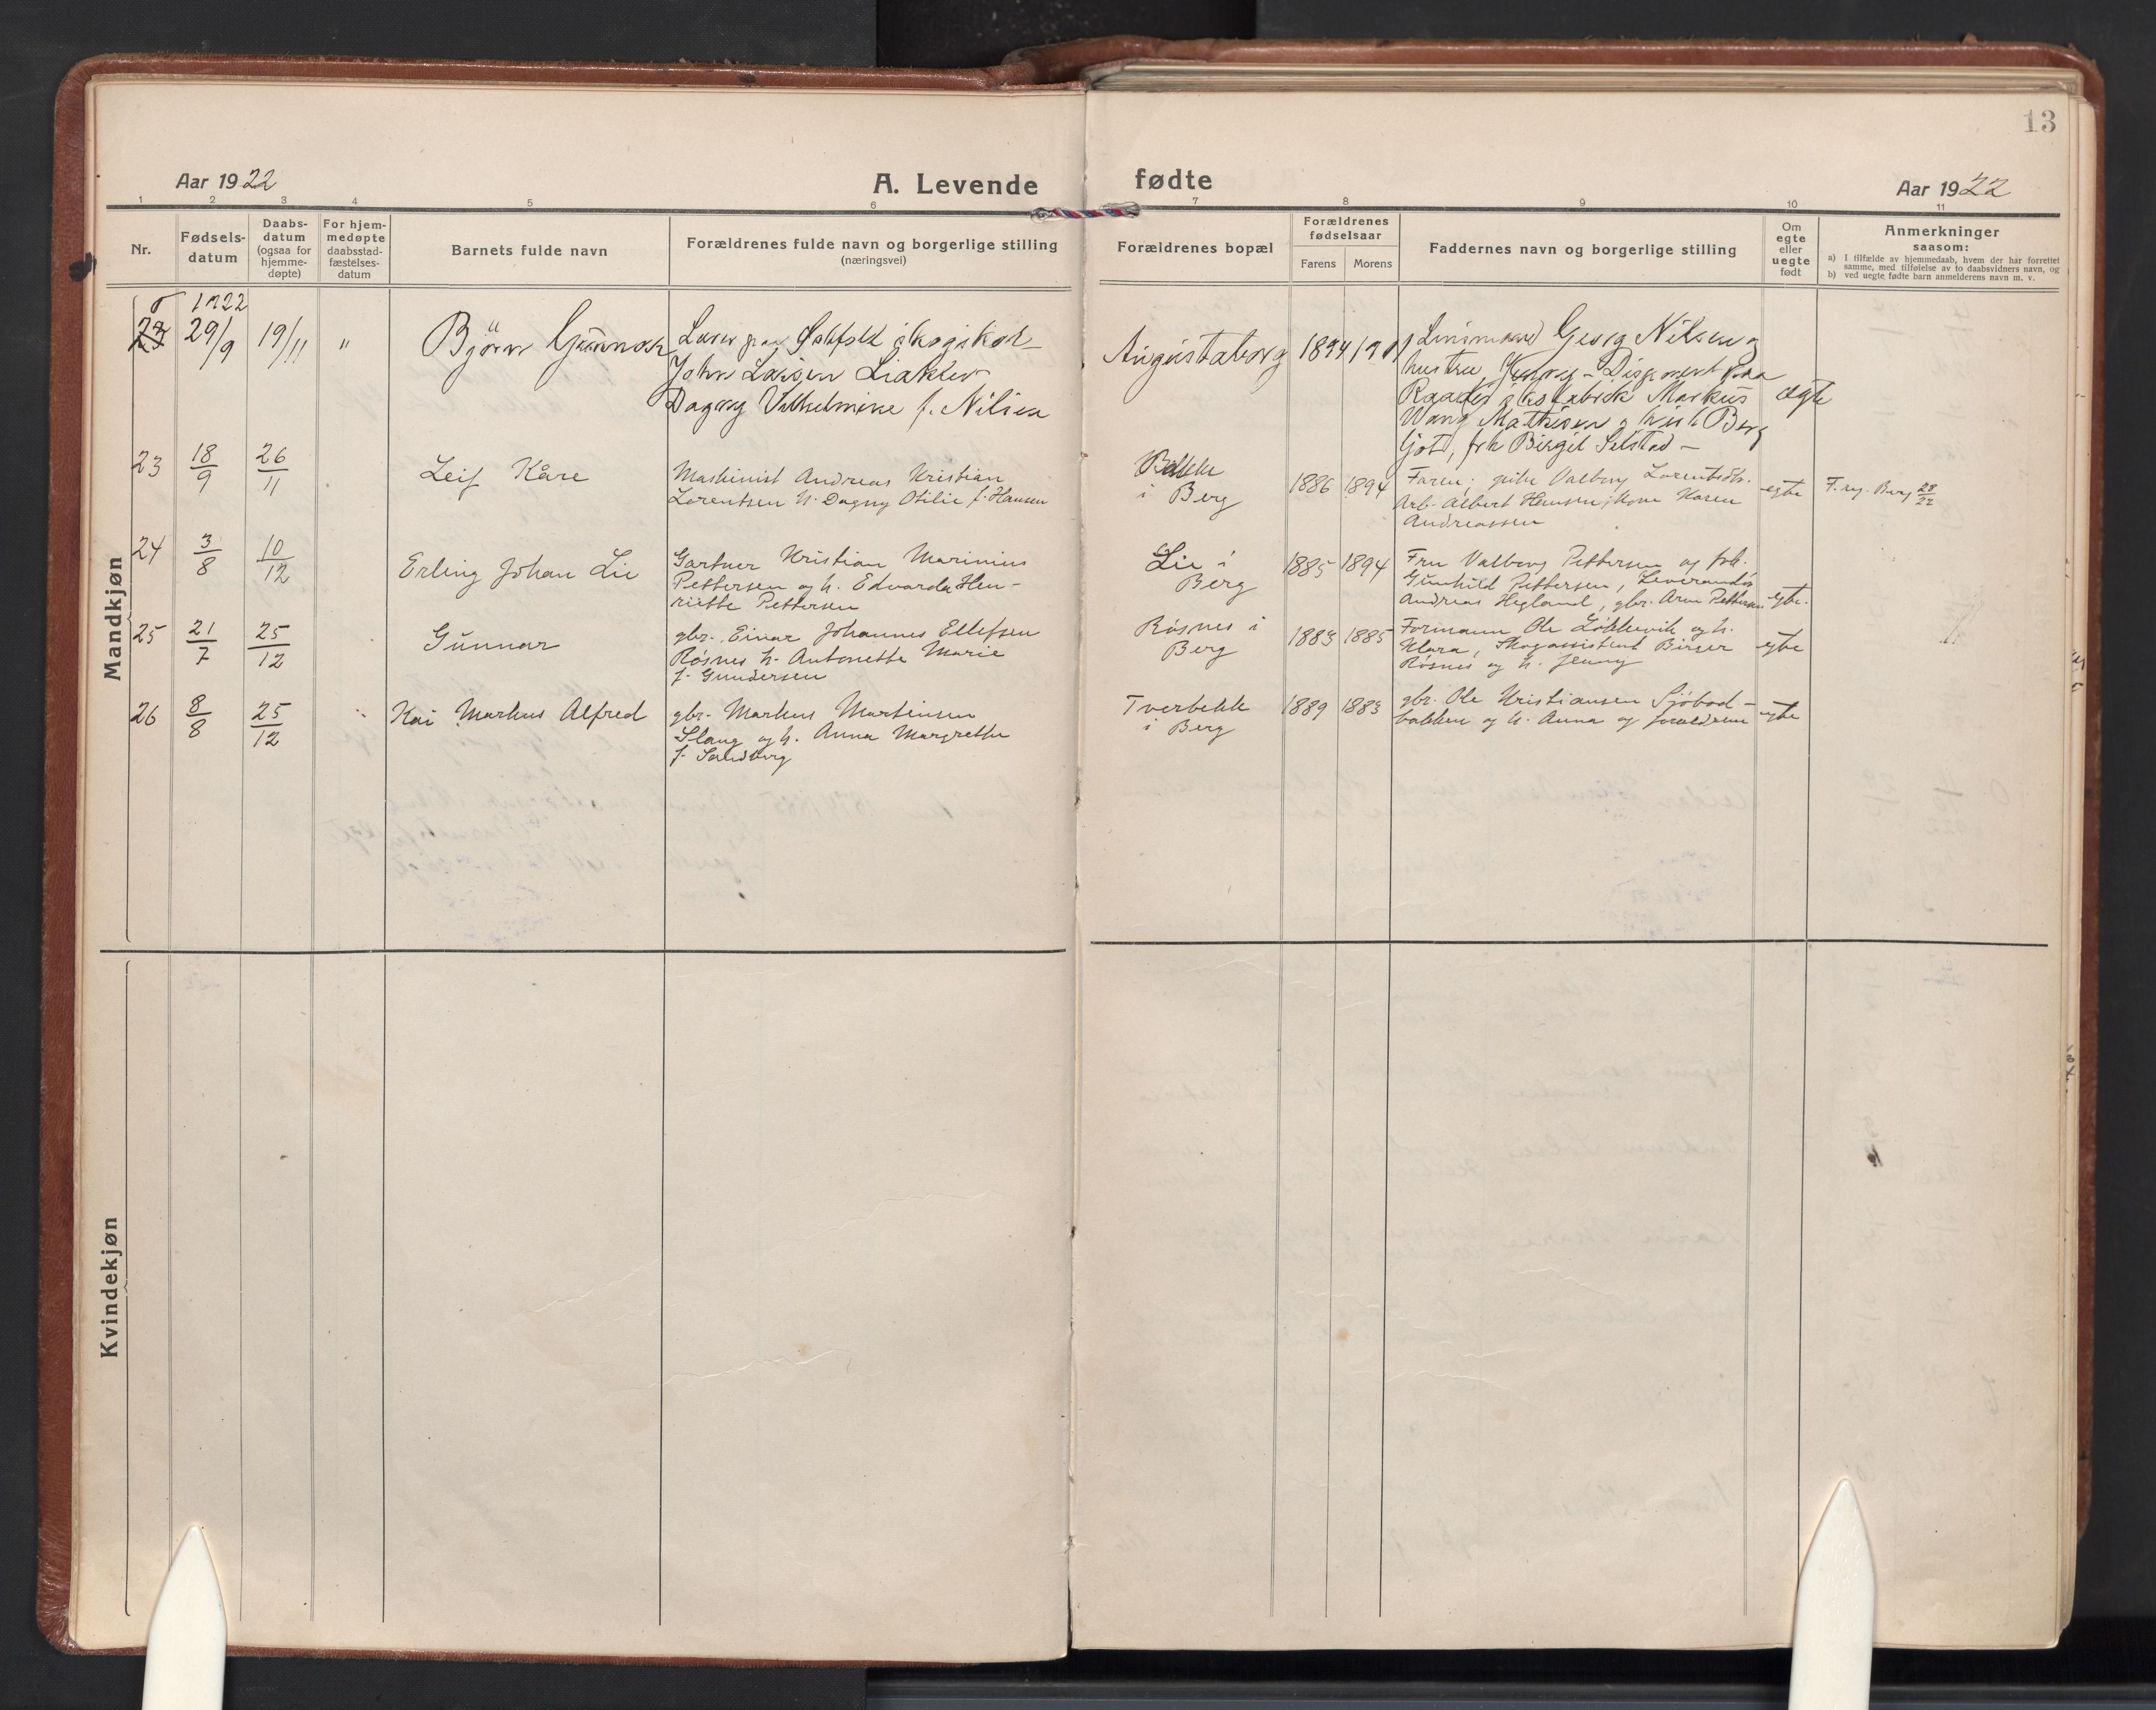 13
Aar 1922
A. Levende fødte
Aar 1922
1 2 3 4 5 6 7 8 9 10 11
Nr.
Fødsels-
datum
Daabs-
datum
(ogsaa for
hjemme-
døpte)
For hjem-
medøpte
daabsstad-
fæstelses-
datum
Barnets fulde navn
Forældrenes fulde navn og borgerlige stilling
(næringsvei)
Forældrenes bopæl
Forældrenes
fødselsaar
Farens Morens
Faddernes navn og borgerlige stilling
Om
egte
eller
uegte
født
Anmerkninger
saasom:
a) I tilfælde av hjemmedaab, hvem der har forrettet
samme, med tilføielse av to daabsvidners navn, og
b) ved uegte fødte barn anmelderens navn m. v.
Mandkjøn
1922
29/9 19/11 "
Björn Gunnar
Lærer paa skogskol-
John Larsen Liaklev
Dagny Vilhelmine f. Nilsen
Augustaborg
1894
Lensmand Georg Nilsen og
hustru - Disponent paa
Markus
Wang Mathisen og Berg
ljot, frk Birgit Selstad -
ægte
23 18/9 26/11
Leif Kåre
Maskinist Andreas Kristian
Lorentsen h. Dagny Otilie f. Hansen
Bakke
i Berg
1886 1894
Faren; pike Valborg
Arb. Albert Hansen, kone Karen
Andreassen
egte
F. reg. Berg 28/22
24 3/8 10/12
Erling Johan Lie
Gartner Kristian Marinius
Pettersen og h. Edvarda Hen-
riette Pettersen
Lie i
Berg
1885 1894
Fru Valborg Pettersen og frk.
Gunhild Pettersen, Leverandör
Andreas Hegland, gbr. Arne Pettersen
egte.
25 21/7 25/12
Gunnar
gbr. Einar Johannes Ellefsen
Røsnes h. Antonette Marie
f. Gundersen
Røsnes i
Berg
1883 1885
Formann Ole Løkkevik og h.
Klara, Skogassistent Birger
Røsnes og h. Jenny
egte
26 8/8 25/12 "
Kai Markus Alfred
gbr. Markus Martinsen
Slang og h. Anna Margrethe
f. Sandberg
Tverbekk
i Berg
1889 1883
gbr. Ole Kristiansen Sjöbod-
bakken og h. Anna og foreldrene
egte
Kvindekjøn